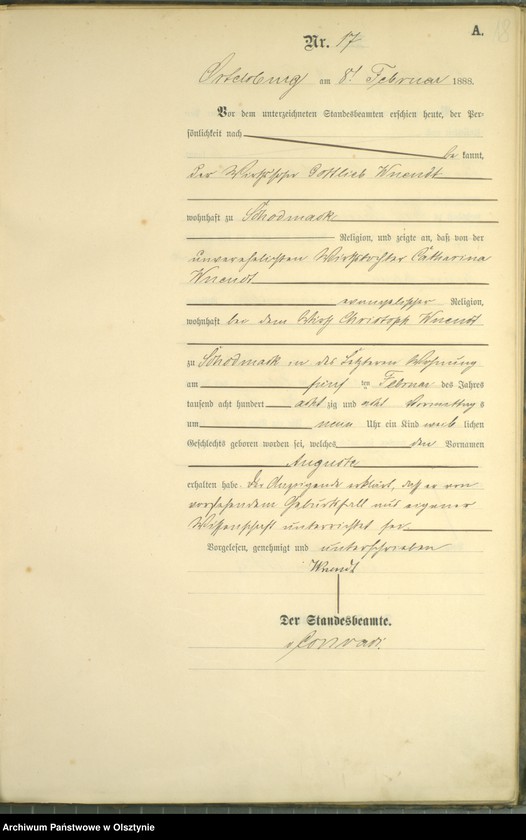 A.
Nr. 17
Ortelsburg am 8t Februar 1888.
Vor dem unterzeichneten Standesbeamten erschien heute, der Per-
sönlichkeit nach
be kannt,
der Gottlieb Wnendt
wohnhaft zu Schodmack
Religion, und zeigte an, daß von der
unverehelichten Wirthstochter Catharina
Wnendt
evangelischer Religion,
wohnhaft bei dem Wirth Christoph Wnendt
zu Schodmack in des Letzteren Wohnung
am fünf ten Februar des Jahrs
tausend acht hundert acht zig und acht Vormittag s
um neun Uhr ein Kind weib lichen
Geschlechts geboren worden sei, welches den Vornamen
Auguste
erhalten habe. Der Anzeigende erklärt, daß er von
vorstehendem Geburtsfall aus eigener
Wissenschaft unterrichtet sei.
Vorgelesen, genehmigt und unterschrieben
Wnendt
Der Standesbeamte.
Conradi.
Archiwum Państwowe w Olsztynie